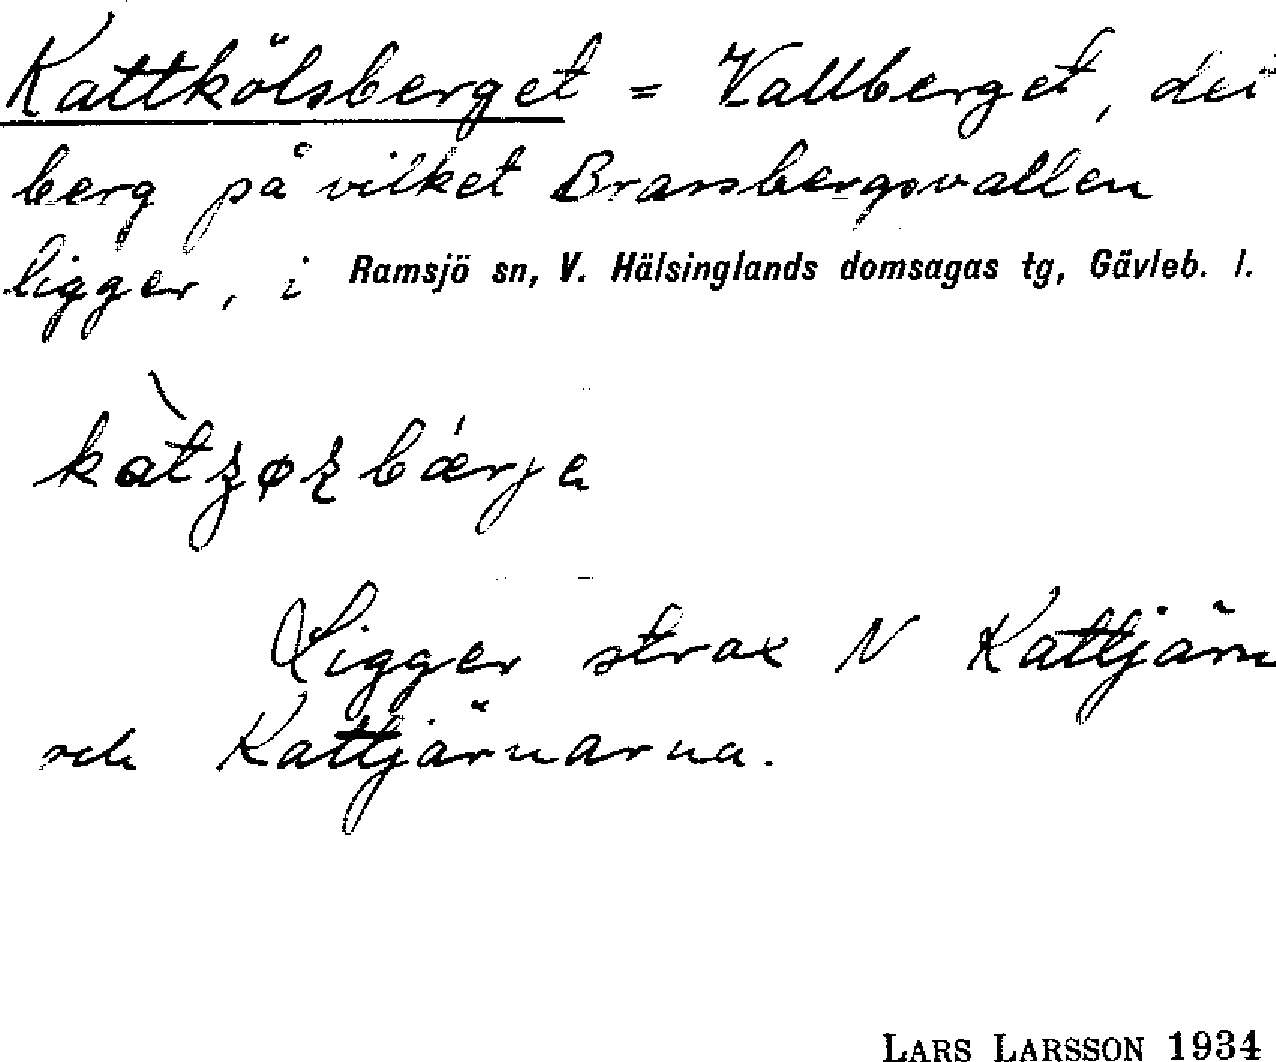 Kattkölsberget = Vallberget, det
berg på vilket Bransbergsvallen
ligger, i Ramsjö sn, V. Hälsinglands domsagas tg, Gävleb. l.
Ligger strax N Kattjärn
och Kattjärnarna.
LARS LARSSON 1934